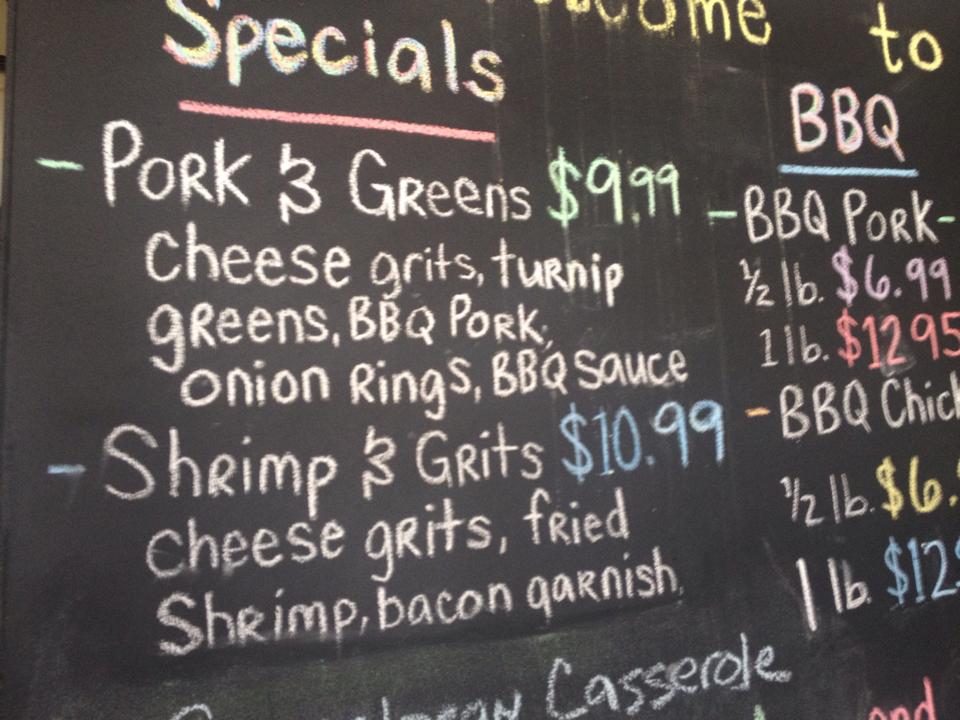 Specials
- Pork & Greens $9.99
cheese grits, turnip
greens, BBQ Pork,
onion Rings, BBQ sauce
- Shrimp & Grits $10.99
cheese grits, fried
Shrimp, bacon garnish,
Casserole
to
BBQ
- BBQ Pork -
1/2 lb. $6.99
1 lb. $12.95
- BBQ
1/2 lb. $6.
1 lb. $12